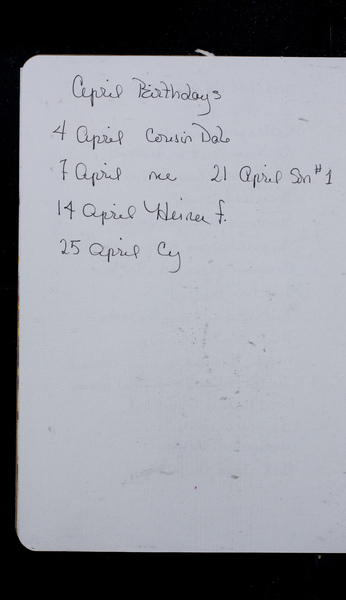 April Birthdays
4 April Cousin Dale
7 April me 21 April Son #1
14 April F.
25 April Cy